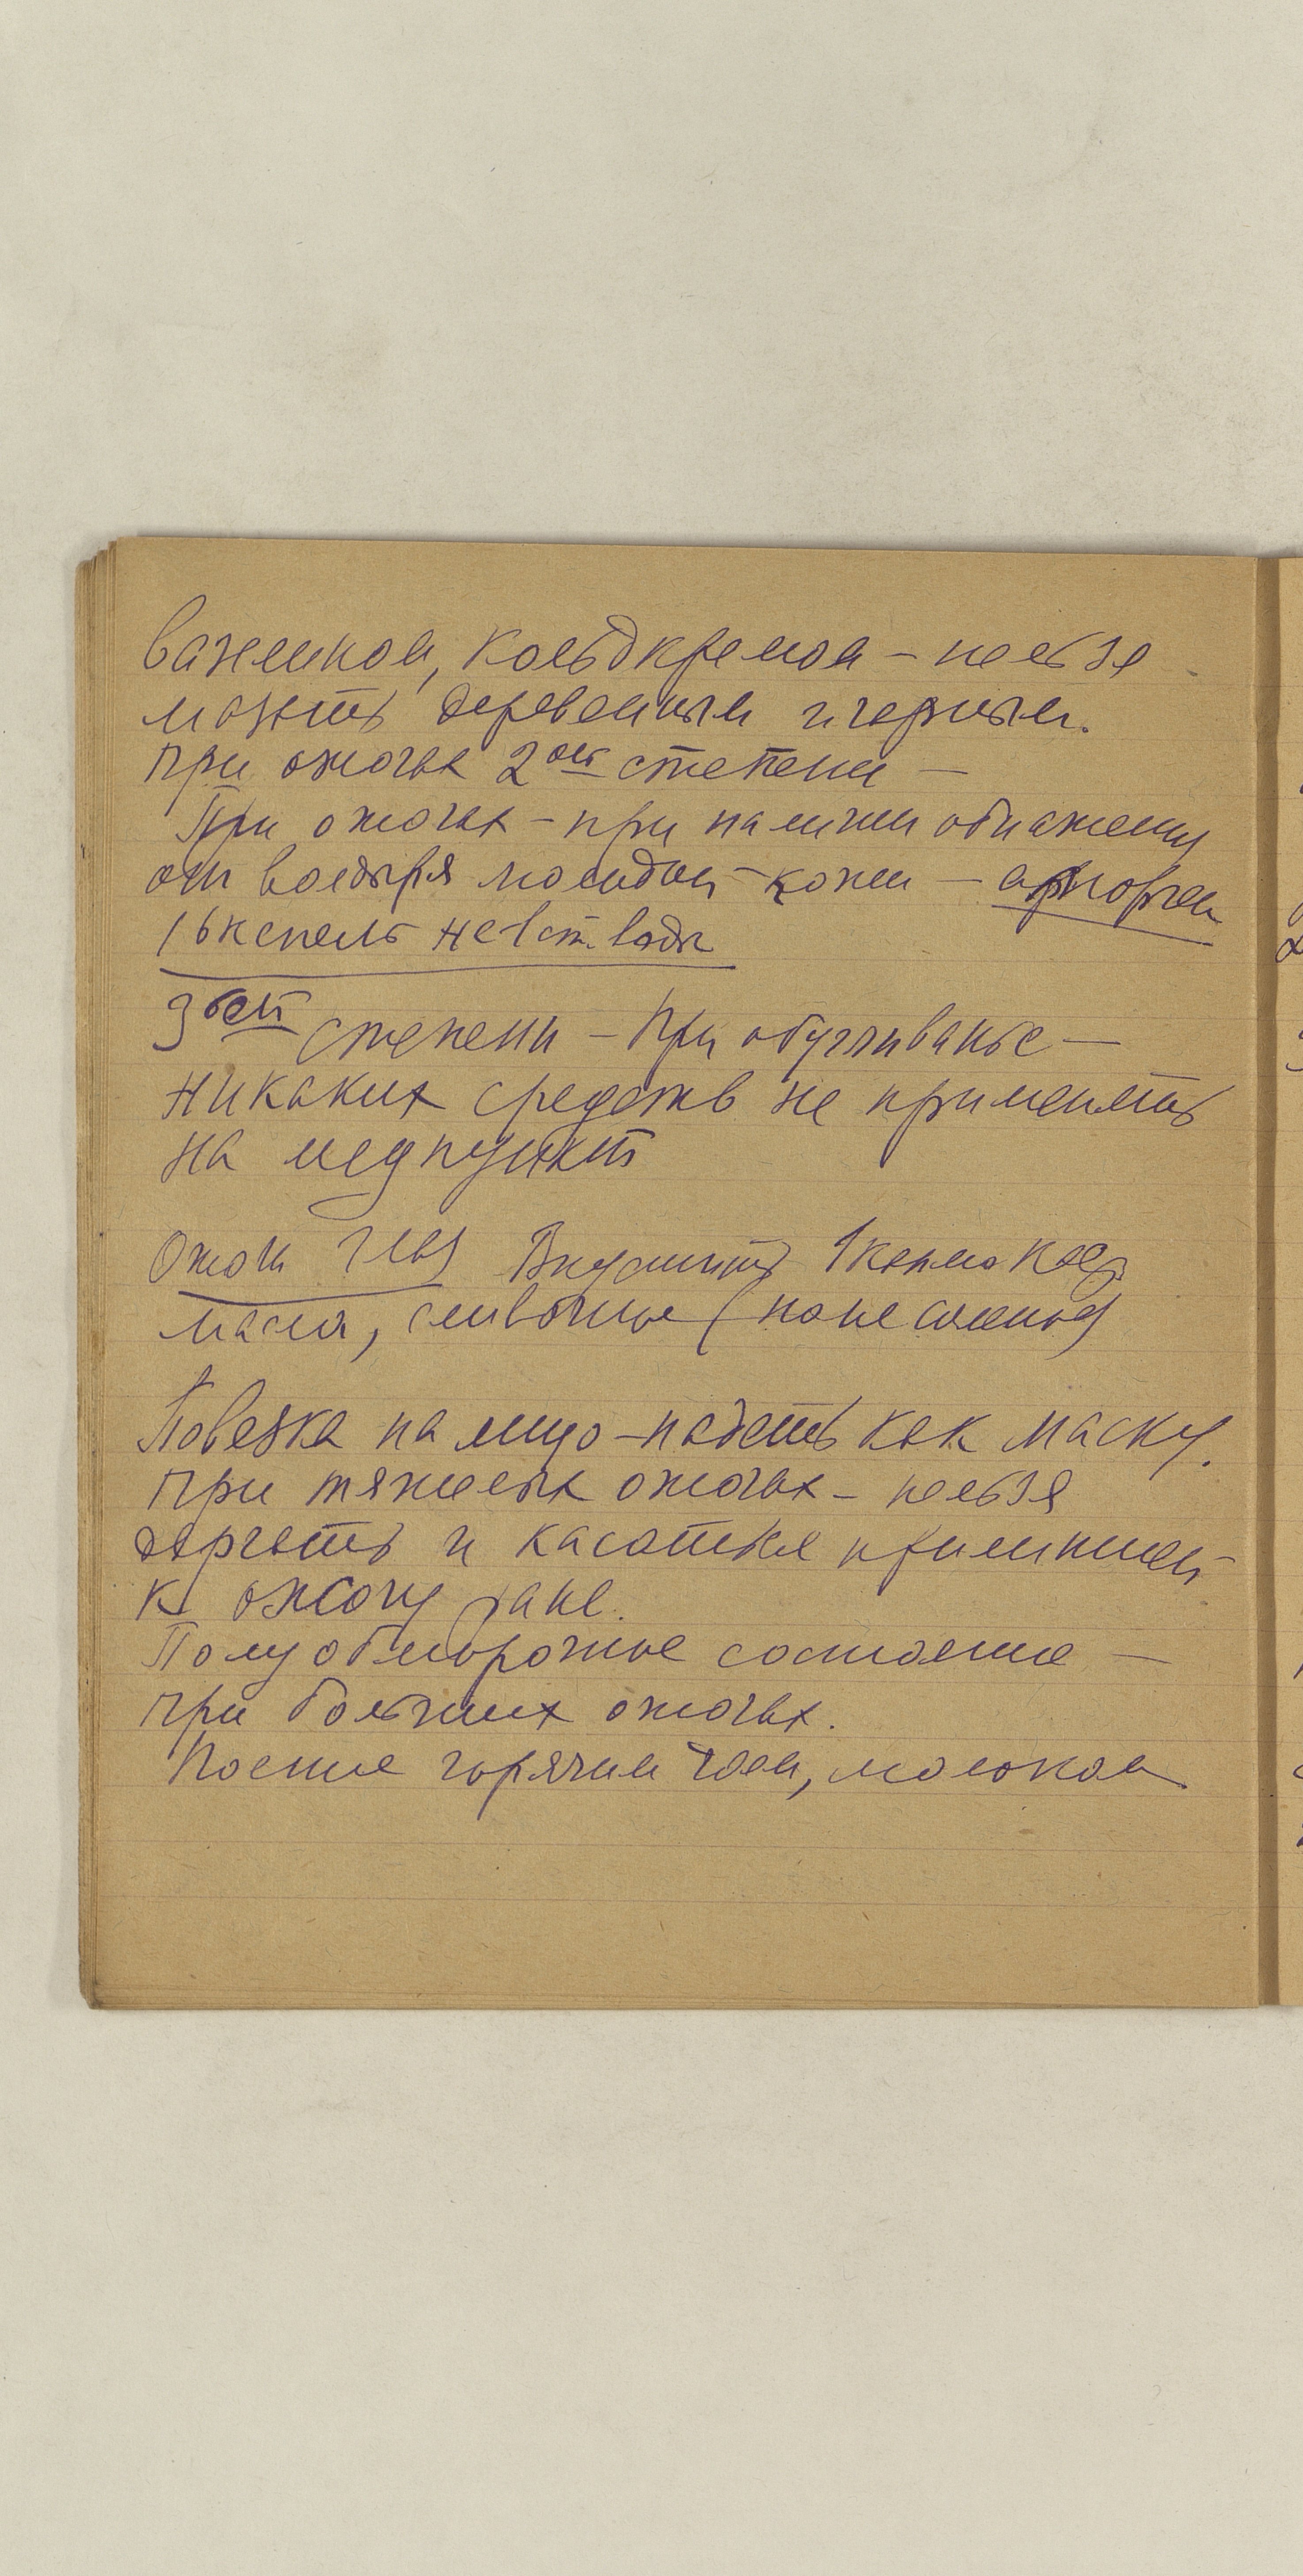 вазелином, кольдкремом – нельзя
мазать деревянным и черным.
При ожогах 2ой степени –
При ожогах – при наличии обнажену
от волдыря молодой кожи –
16 капель на 1 ст. воды
3ьей степени – При обугливанье –
никаких средств не применять
на медпункт
Ожоги глаз Впустить 1 каплю
масла, сливочное (
Повязка на лицо – надеть как маску.
При тяжелых ожогах – нельзя
дергать и касаться прилипшей
к ожогу ране.
Полуобморочное состояние –
при больших ожогах.
Поение горячим чаем, молоком